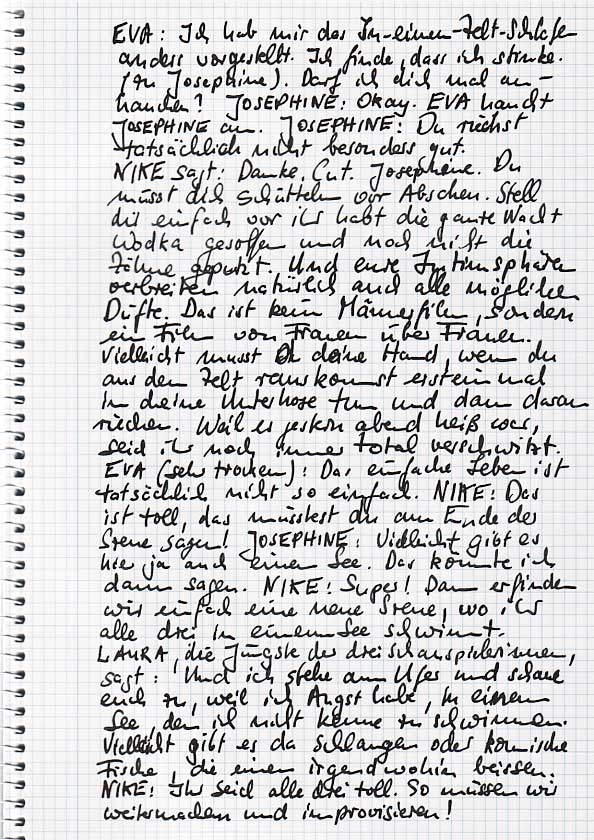 EVA: Ich hab mir das In-einem-Zelt-Schlafen
anders vorgestellt. Ich finde, dass ich stinke.
(zu Josephine). Darf ich dich mal an-
hauchen? JOSEPHINE: Okay. EVA haucht
JOSEPHINE an. JOSEPHINE: Du riechst
tatsächlich nicht besonders gut.
NIKE sagt: Danke. Cut. Josephine. Du
musst dich schütteln vor Abscheu. Stell
dir einfach vor ihr habt die ganze Nacht
Wodka gesoffen und noch nicht die
Zähne geputzt. Und eure Intimsphären
verbreiten natürlich auch alle möglichen
Düfte. Das ist kein Männerfilm, sondern
ein Film von Frauen über Frauen.
Vielleicht musst Du deine Hand, wenn du
aus dem Zelt rauskommst erst einmal
in deine Unterhose tun und dann daran
riechen. Weil es gestern abend heiß war,
seid ihr noch immer total verschwitzt.
EVA (sehr trocken): Das einfache Leben ist
tatsächlich nicht so einfach. NIKE: Das
ist toll, das müsstest du am Ende der
Szene sagen! JOSEPHINE: Vielleicht gibt es
hier ja auch einen See. Das könnte ich
dann sagen. NIKE: Super! Dann erfinden
wir einfach eine neue Szene, wo ihr
alle drei in einem See schwimmt.
LAURA, die Jüngste der drei Schauspielerinnen,
sagt: Und ich stehe am Ufer und schaue
euch zu, weil ich Angst habe, in einem
See, den ich nicht kenne zu schwimmen.
Vielleicht gibt es da Schlangen oder komische
Fische, die einen irgendwohin beissen.
NIKE: Ihr seid alle drei toll. So müssen wir
weitermachen und improvisieren!